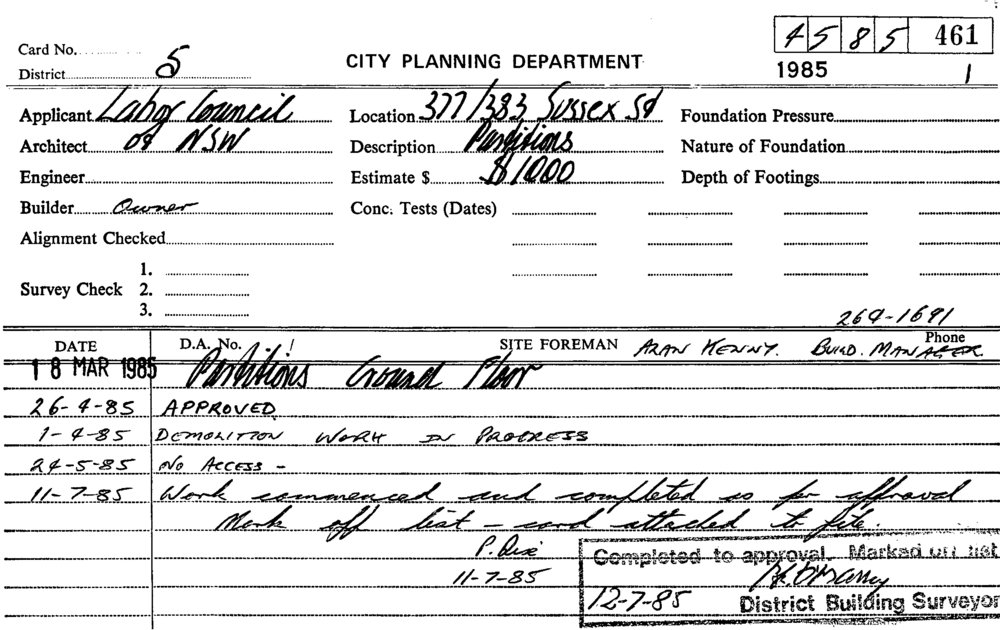 4585 461
Card No.
District 5
CITY PLANNING DEPARTMENT
1985 1
Applicant Labor Council Location 377/383 Sussex St Foundation Pressure
Architect of NSW Description Partitions Nature of Foundation
Engineer Estimate $ $1000 Depth of Footings
Builder Owner Conc. Tests (Dates)
Alignment Checked
1.
Survey Check 2.
3.
264-1691
DATE D.A. No. / SITE FOREMAN ALAN KENNY. BUILD. MANAGER Phone
18 MAR 1985 Partitions Ground Floor
26-4-85 APPROVED
1-4-85 DEMOLITION WORK IN PROGRESS
24-5-85 NO ACCESS -
11-7-85 Work commenced and completed as per approval
Mark off list - card attached to file.
P.
11-7-85
Completed to approval. Marked off list
12-7-85 District Building Surveyor